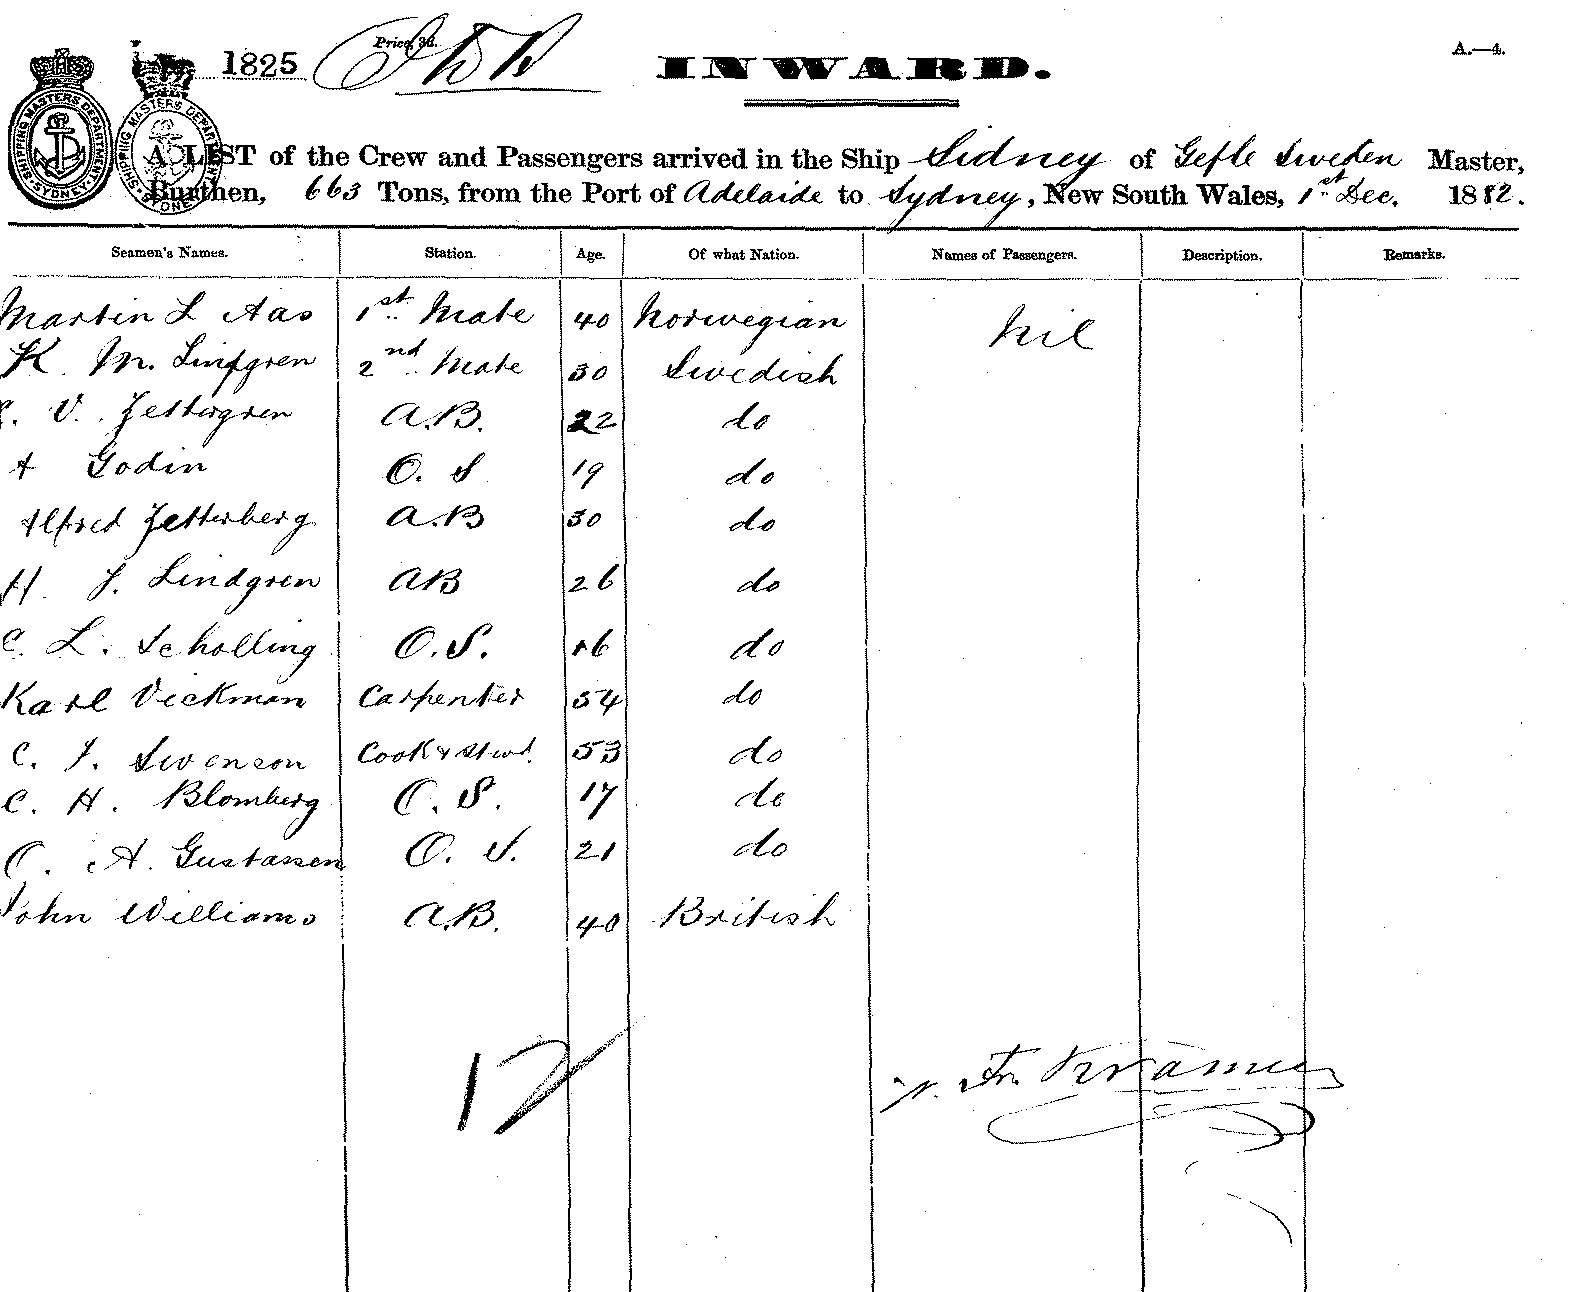 1825 Price, 3d. INWARD. A.—4.
SHIPPING MASTERS DEPARTMENT SYDNEY
SHIPPING MASTERS DEPARTMENT SYDNEY
A LIST of the Crew and Passengers arrived in the Ship Sidney of Gefle Sweden Master,
Burthen, 663 Tons, from the Port of Adelaide to Sydney, New South Wales, 1st Dec. 1882.
Seamen's Names. Station. Age. Of what Nation. Names of Passengers. Description. Remarks.
Martin L Aas 1st Mate 40 Norwegian Nil
K. M. Lindgren 2nd Mate 30 Swedish
V. Zettergren A.B. 22 do
A Godin O. S 19 do
Alfred Zetterberg A.B 30 do
H. J. Lindgren AB 26 do
C. L. Scholling O.S. 16 do
Karl Vickman Carpenter 54 do
C. J. Swenson Cook & Stwd. 53 do
C. H. Blomberg O. S. 17 do
O. A. Gustassen O. S. 21 do
John Williams A.B. 40 British
12
Fr. Krämer